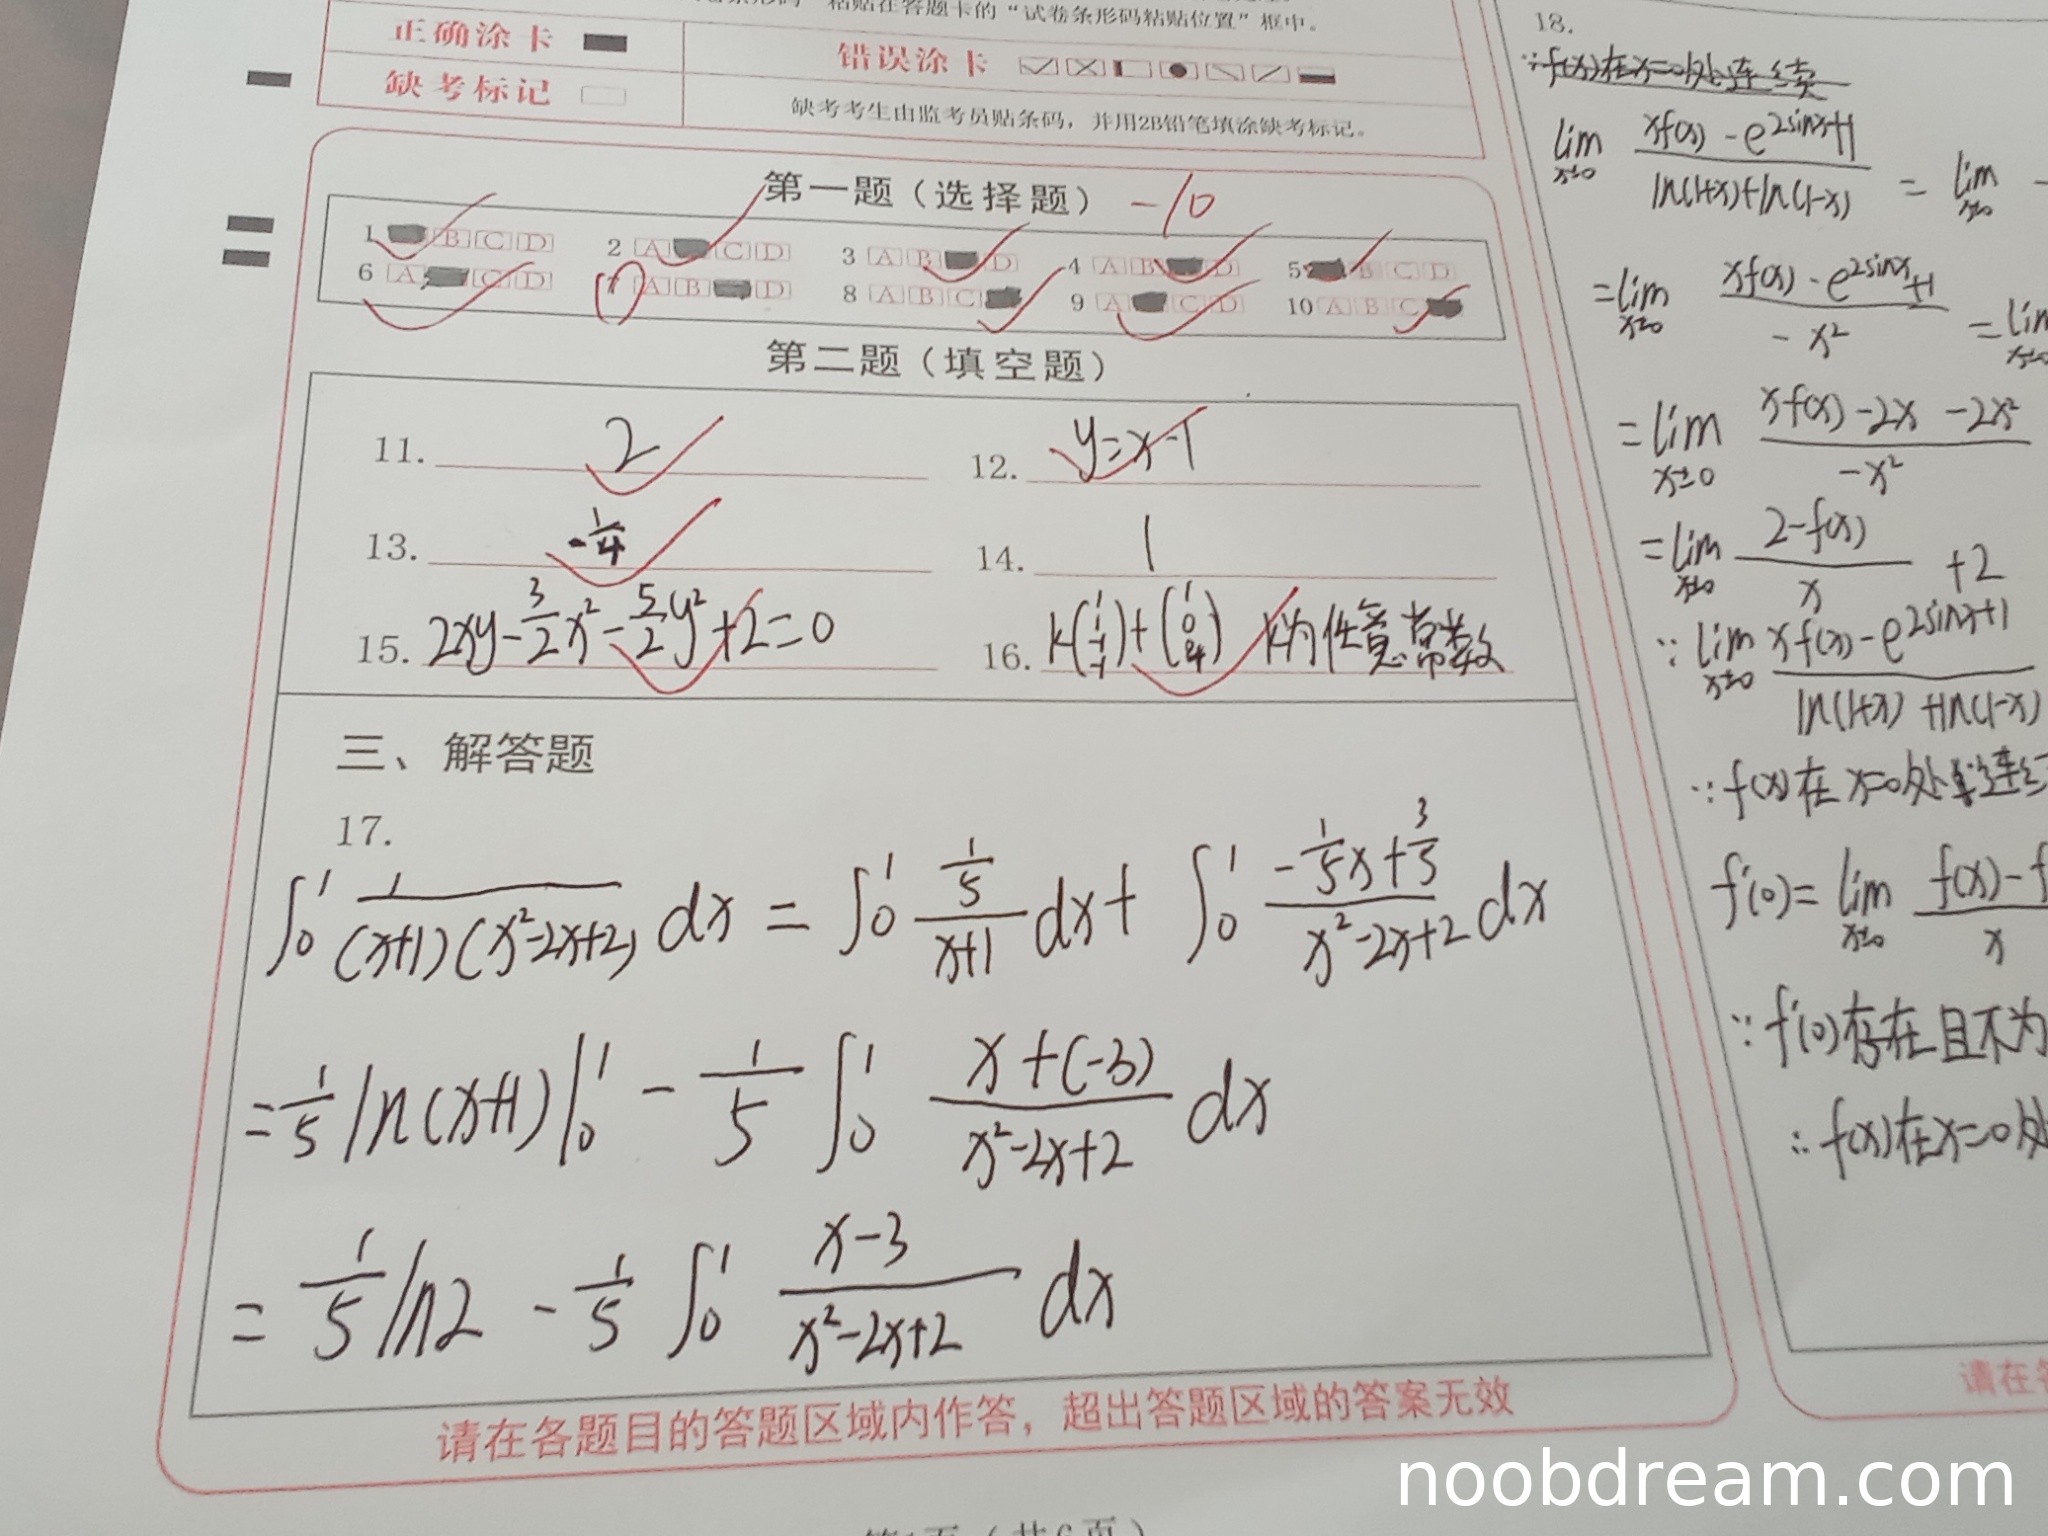 粘贴在答题卡的“试卷条形码粘贴位置”框中。
正确涂卡
错误涂卡
缺考标记
缺考考生由监考员贴条码，并用2B铅笔填涂缺考标记。
第一题（选择题） -10
1 B C D 2 A C D 3 A B D 4 A B D 5 B C D
6 A C D 7 A B D 8 A B C 9 A C D 10 A B C
第二题（填空题）
11. 2 12. y=x-1
13. -1/4 14. 1
15. 2xy-3/2x²-5/2y²+2=0 16. k(1 1 -1)+(1 0 4) k为任意常数
三、解答题
17.
∫₀¹ 1/((x+1)(x²-2x+2)) dx = ∫₀¹ (1/5)/(x+1) dx + ∫₀¹ (-1/5x+3/5)/(x²-2x+2) dx
= 1/5 ln(x+1)|₀¹ - 1/5 ∫₀¹ (x+(-3))/(x²-2x+2) dx
= 1/5 ln2 - 1/5 ∫₀¹ (x-3)/(x²-2x+2) dx
请在各题目的答题区域内作答，超出答题区域的答案无效
18.
∵f(x)在x=0处连续
lim x→0 (xf(x)-e^(2sinx)+1)/(ln(1+x)+ln(1-x)) = lim x→0 -
=lim x→0 (xf(x)-e^(2sinx)+1)/(-x²) = lim x→0
=lim x→0 (xf(x)-2x-2x²)/(-x²)
=lim x→0 (2-f(x))/x +2
∵ lim x→0 (xf(x)-e^(2sinx)+1)/(ln(1+x)+ln(1-x))
∵f(x)在x=0处连
f'(0)=lim x→0 (f(x)-f)/x
∵f'(0)存在且不为
∴f(x)在x=0处
请在
noobdream.com